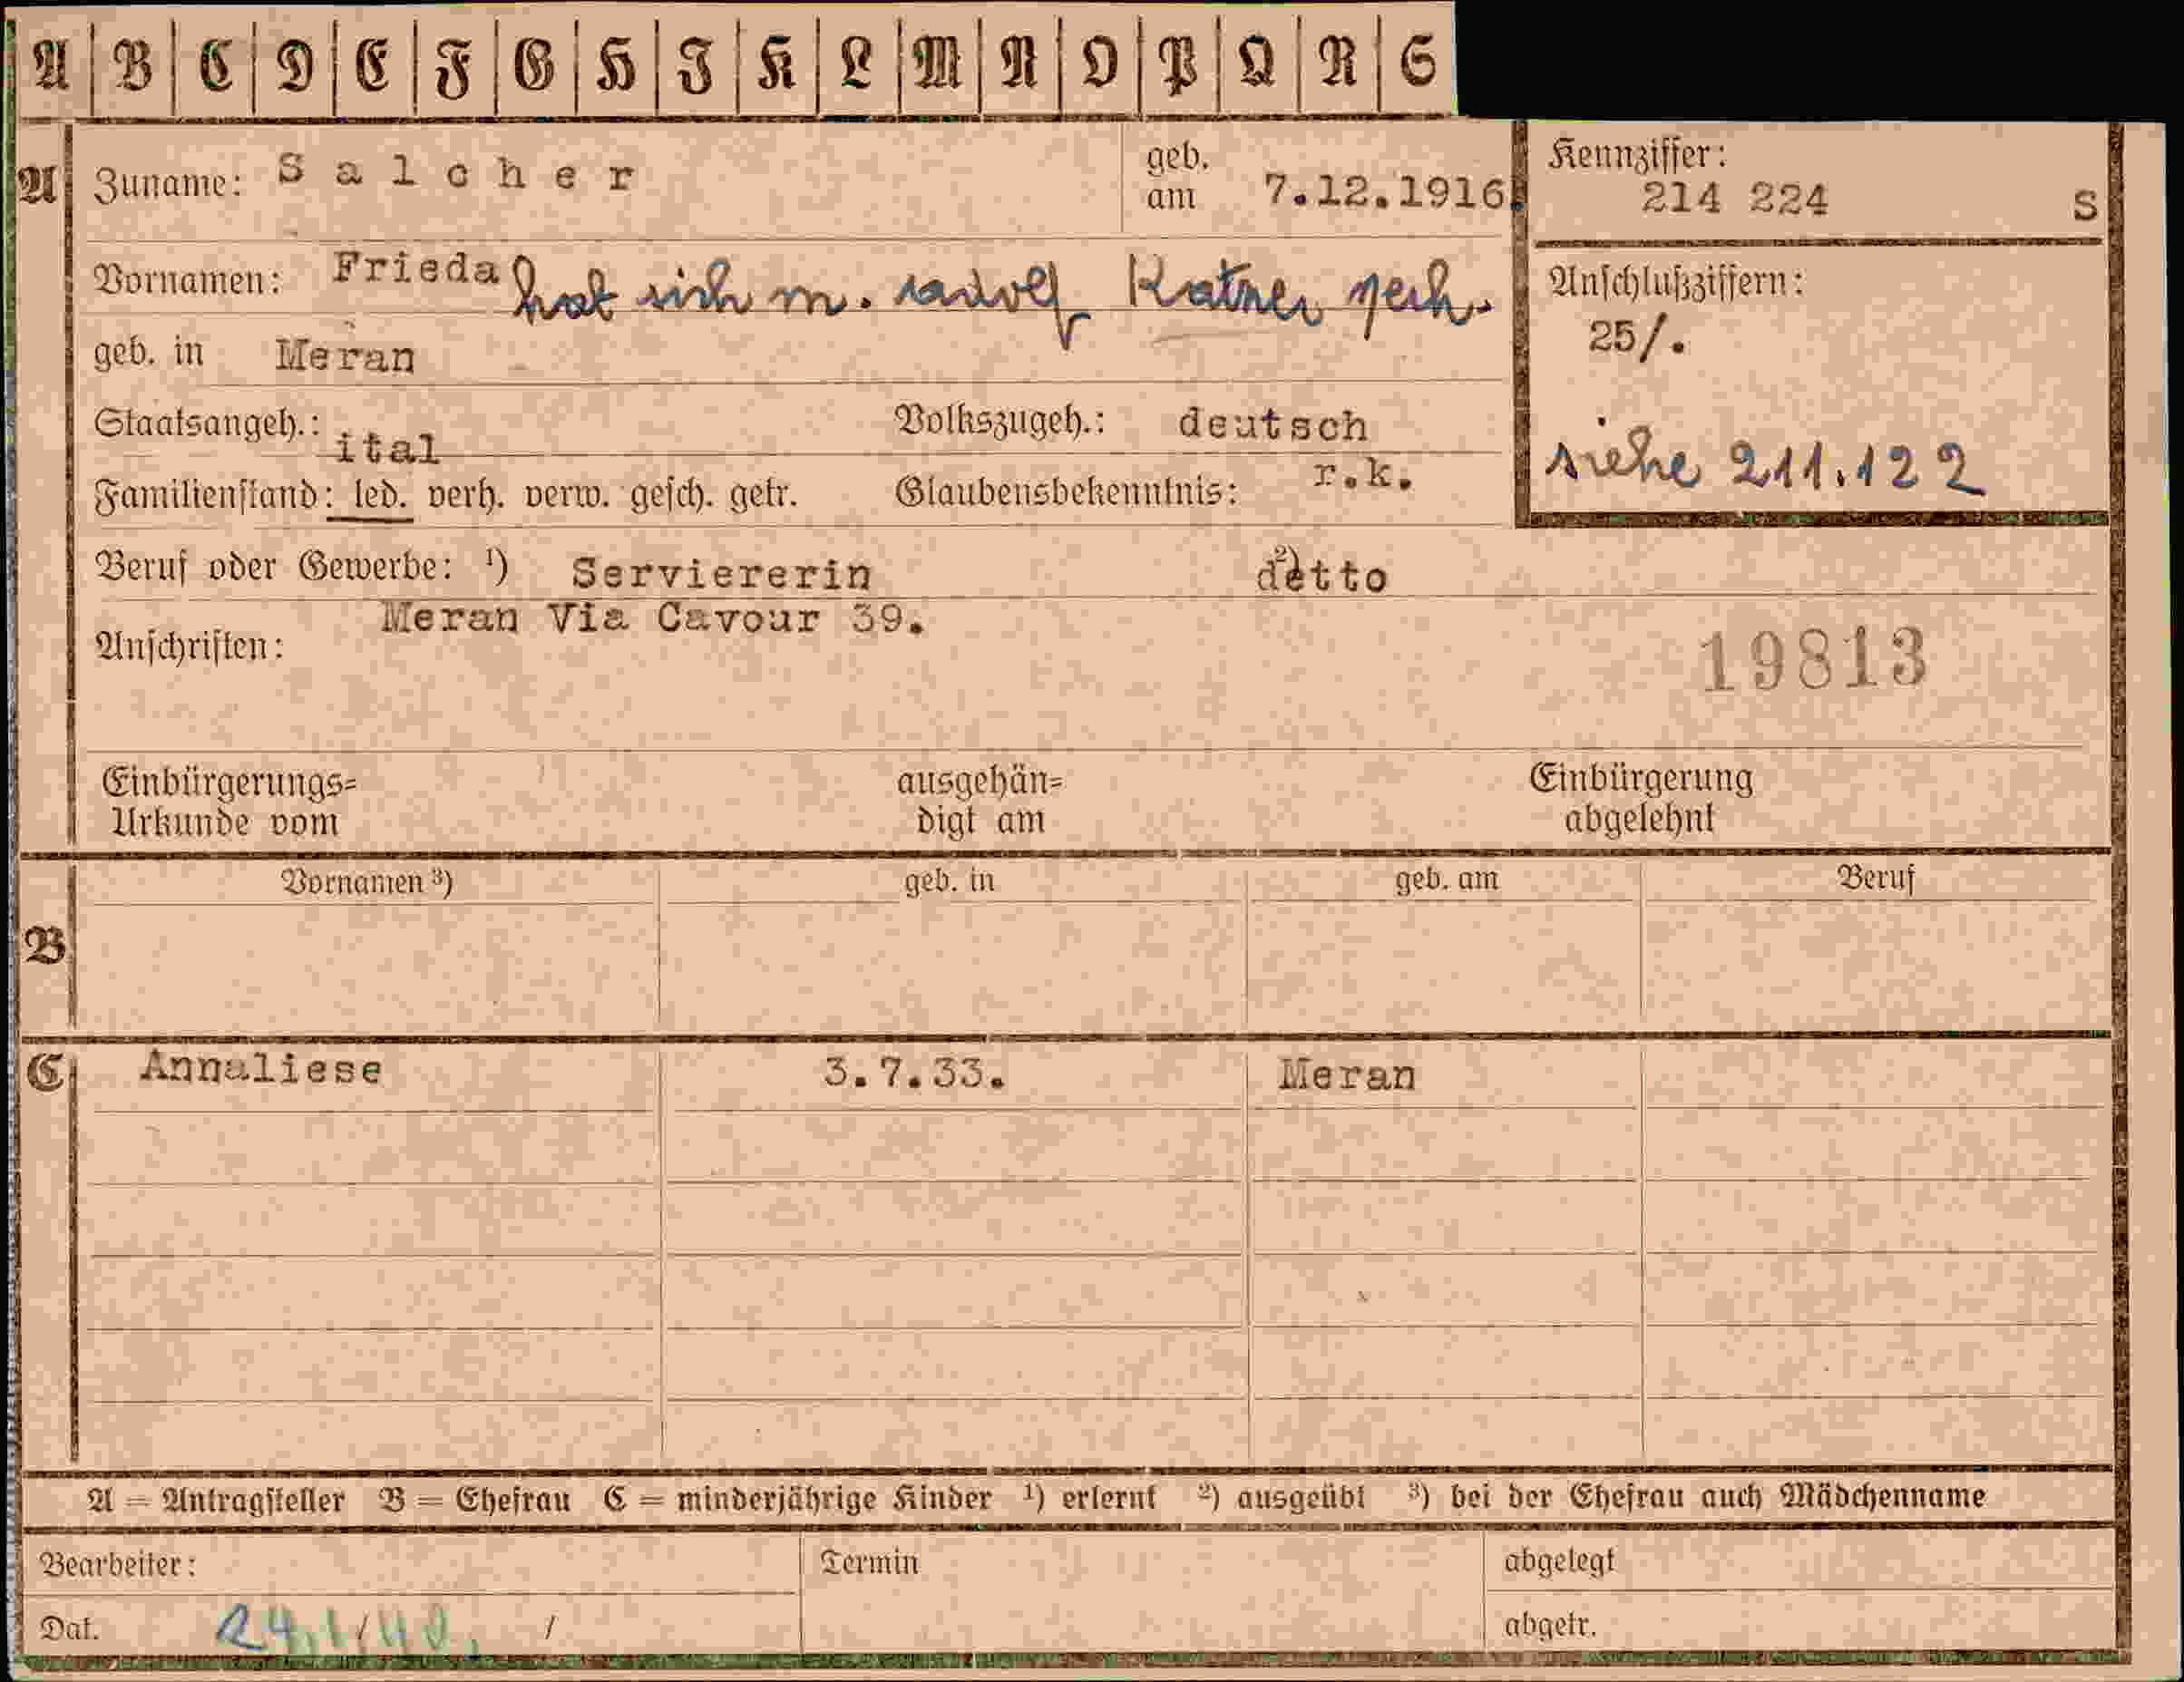 A B C D E F G H I K L M N O P Q R S
A Zuname: Salcher geb. am 7.12.1916. Kennziffer: 214 224 S
Vornamen: Frieda hat sich m. Katner Anschlußziffern:
25/.
geb. in Meran
Staatsangeh.: ital Volkszugeh.: deutsch
siehe 211.122
Familienstand: led. verh. verw. gesch. getr. Glaubensbekenntnis: r.k.
Beruf oder Gewerbe: ¹) Serviererin ²) detto
Anschriften: Meran Via Cavour 39.
19813
Einbürgerungs= ausgehän= Einbürgerung
Urkunde vom digt am abgelehnt
Vornamen ³) geb. in geb. am Beruf
B
C Annaliese 3.7.33. Meran
A = Antragsteller B = Ehefrau C = minderjährige Kinder ¹) erlernt ²) ausgeübt ³) bei der Ehefrau auch Mädchenname
Bearbeiter: Termin abgelegt
Dat. 24.1/40. / abgetr.